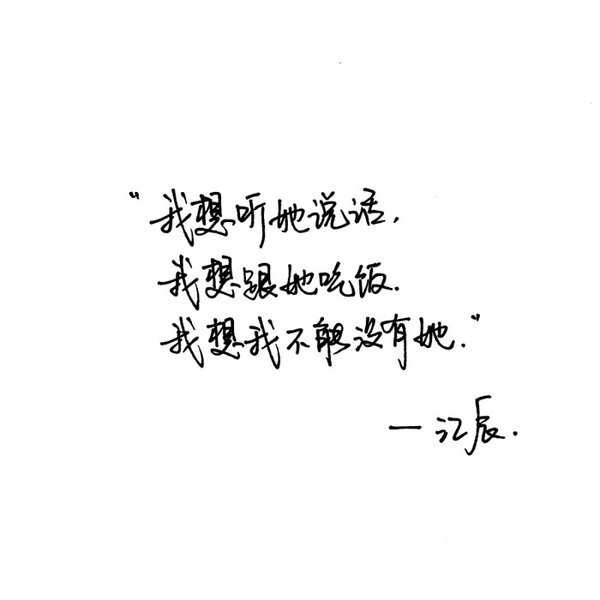 “我想听她说话.
我想跟她吃饭.
我想我不能没有她.”
— 江辰.